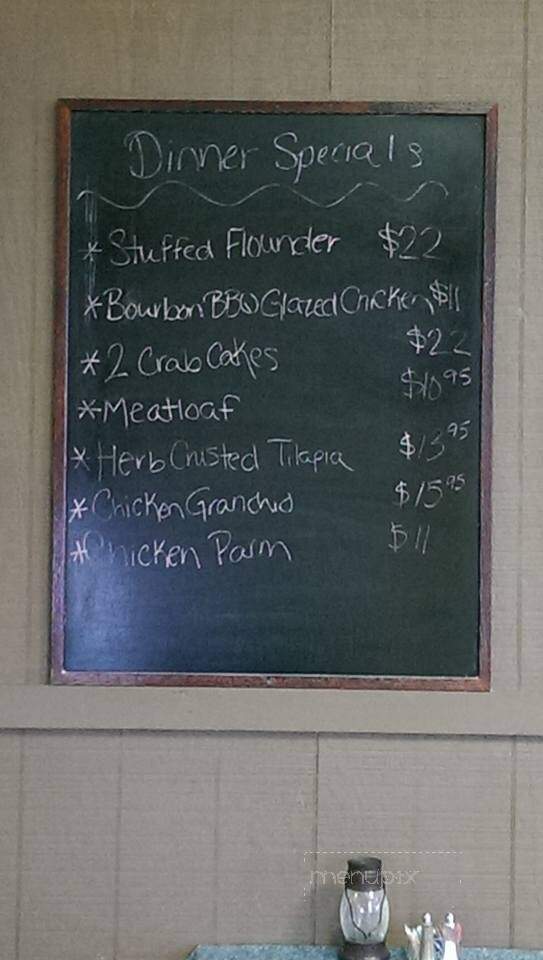 Dinner Specials
* Stuffed Flounder $22
* Bourbon BBQ Glazed Chicken $11
* 2 Crab Cakes $22
* Meatloaf $10.95
* Herb Crusted Tilapia $13.95
* Chicken Granchio $15.95
* Chicken Parm $11
menupix